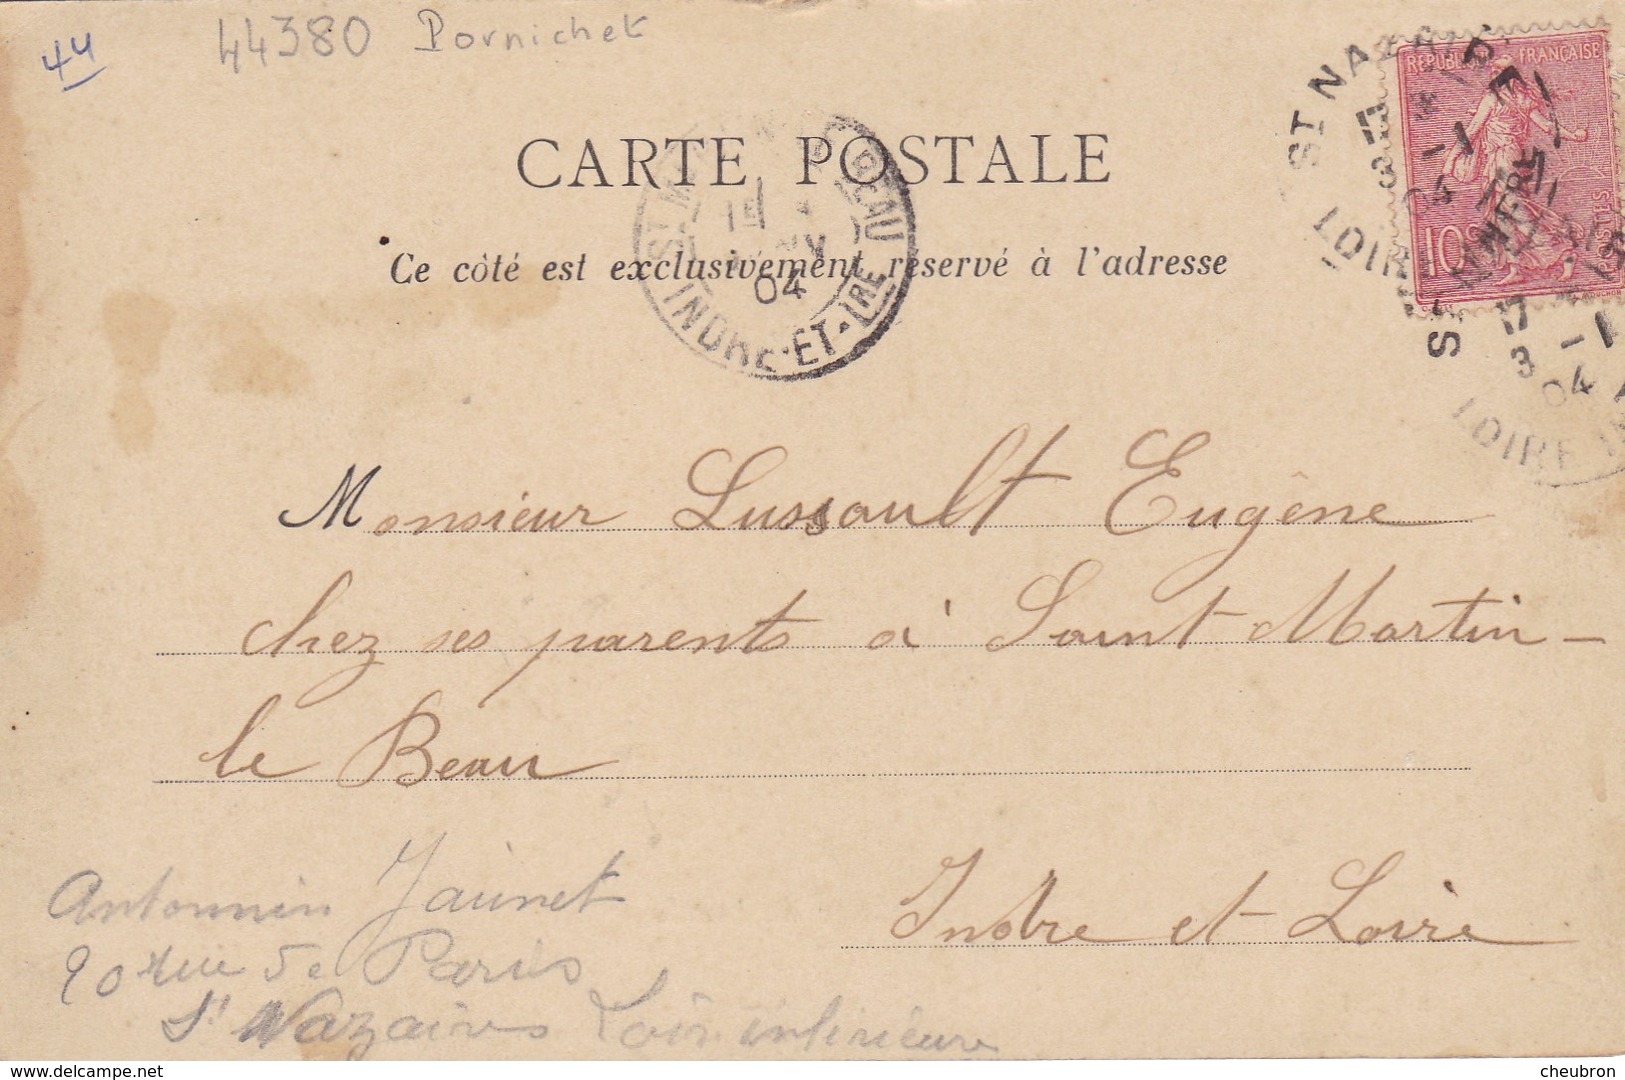 44
44380 Pornichet
REPUBLIQUE FRANÇAISE
10
POSTES
ST NAZAIRE
17
3 -1
04
LOIRE
ST NAZAIRE
17
3 -1
04
LOIRE IN
CARTE POSTALE
ST M
BEAU
04
INDRE-ET-LRE
Ce côté est exclusivement réservé à l'adresse
Monsieur Lussault Eugène
chez ses parents à Saint-Martin-
le Beau
Indre et Loire
Antonnin Jaunet
90 rue de Paris
St Nazaire Loire inférieure
delcampe.net
cheubron